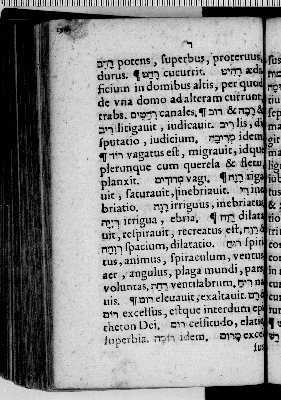 ר
רהב potens, superbus, proteruus,
durus. ¶ רהט cucurrit. רהיט ædi
ficium in domibus altis, per quod
de vna domo ad alteram currunt,
trabs. רהטים canales. ¶ רוב & רבה &
ריב litigauit, iudicauit. ריב di
sputatio, iudicium. מריבה idem.
¶ רוד vagatus est, migrauit, idque
plerunque cum querela & fletu,
planxit. מרודים vagi. ¶ רוה riga
uit, saturauit, inebriauit. רי ine
briatio. רוה irriguus, inebriatus
רויה irrigua, ebria. ¶ רוח dilata
uit, respirauit, recreatus est. רוח &
רוחה spacium, dilatatio. רוח spiri
tus, animus, spiraculum, ventus
aer, angulus, plaga mundi, pars,
voluntas. רחת ventilabrum. na
uis. ¶ רום & רם eleuauit, exaltauit.
רום excelsus, estque interdum epi
theton Dei. רום celsitudo, elatio
superbia. רומה idem. מרום excel
sus